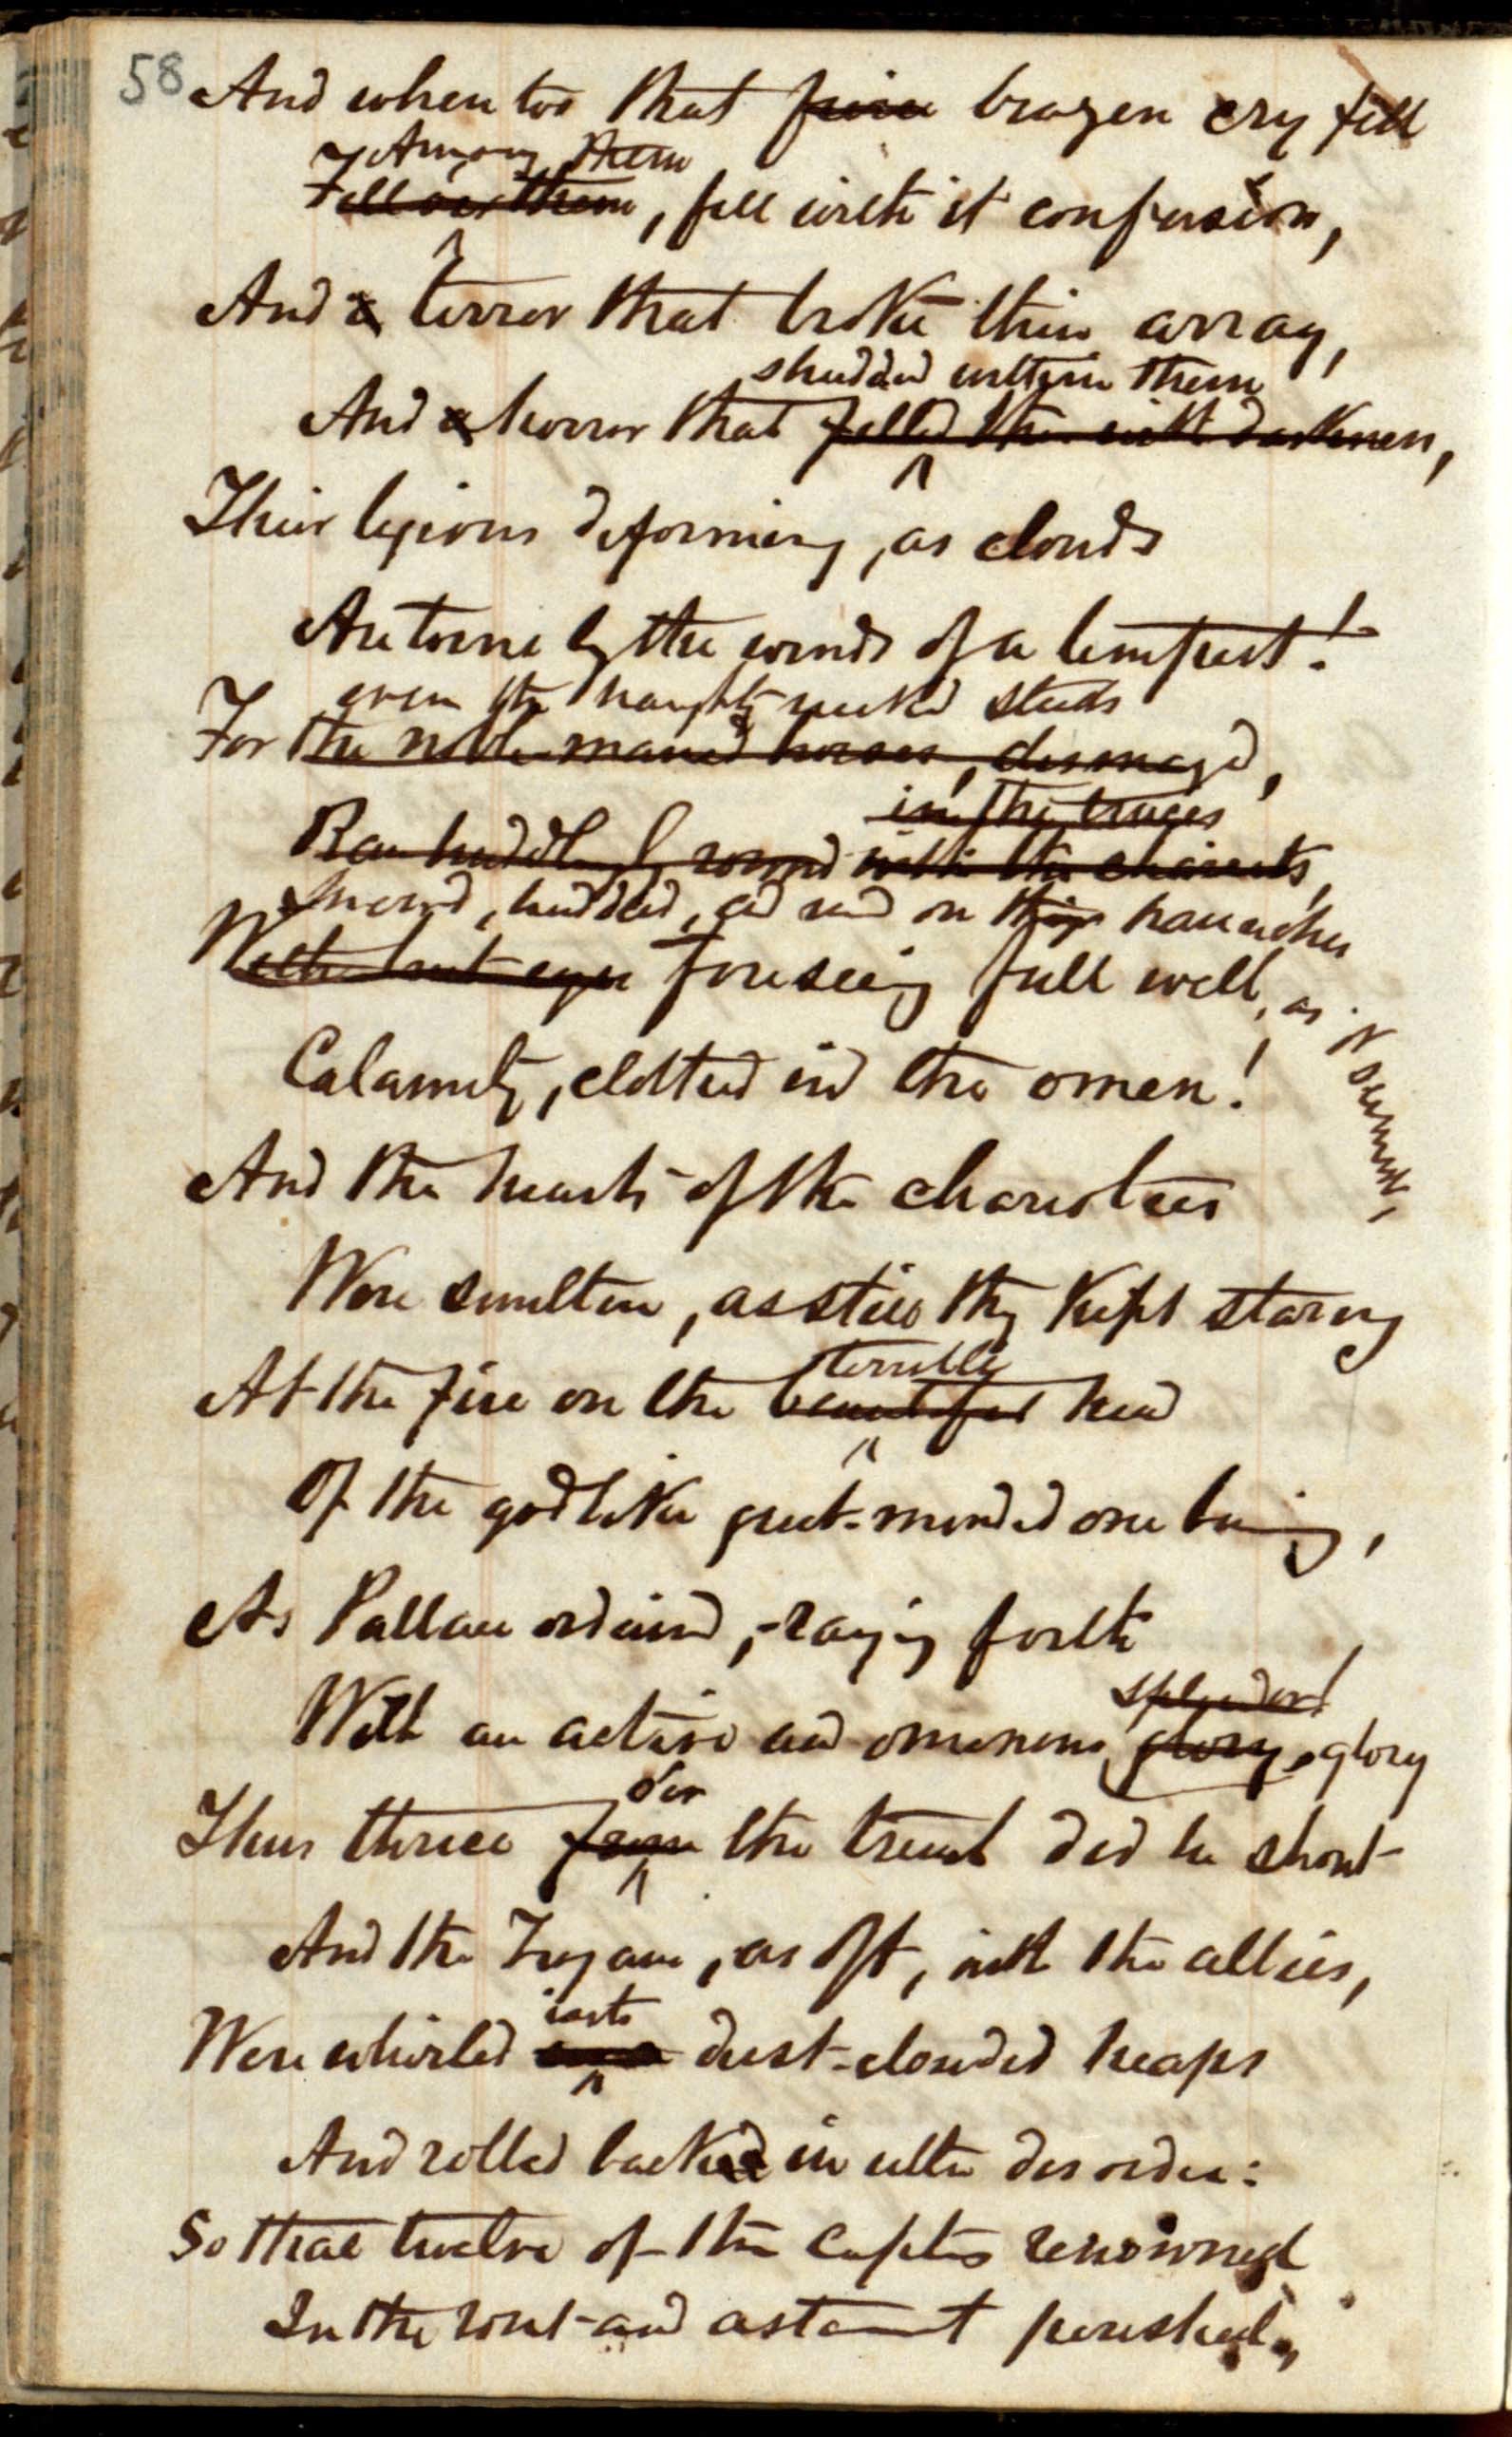 58
And when too that brazen cry fell
Among them
Fell over them, fell with it confusion,
And a terror that broke thier array,
shudded within them
And a horror that filled them with darkness,
Thier legions deforming, as clouds
Are torne by the winds of a tempest!
even the haughty-necked steeds
For the noble-maned horses, dismayd,
in the traces
Ran huddling round with the chariots,
huddled, and on thier haunches
With eyes foreseeing full well, as it seemed,
Calamity, clotted in the omen!
And the hearts of the charioteers
Were smitten, as still they kept staring
At the fire on the beautiful head
terrible
Of the godlike great-minded one burning,
As Pallas ordaind, raying forth
splendor!
With an active and ominous glory glory
o'er
Thus thrice from the trench did he shout
And the Trojans, as oft, with the allies,
into
Were whirled dust-clouded heaps
And rolled back in utter disorder:
So that twelve of the capts renowned
In the rout and astonment perished,